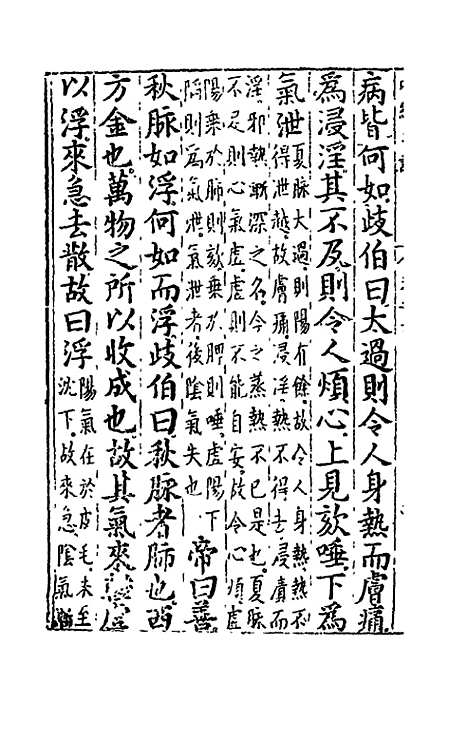 病皆何如歧伯曰太過則令人身熱而膚痛
爲浸淫其不及則令人煩心上見欬唾下爲
氣泄
夏脉大過則陽有餘故令人身熱熱不
得泄越故膚痛浸淫熱不得去浸漬而
淫邪熱漸深之名今之蒸熱不已是也夏脉
不足則心氣虛虛則不能自安故令心煩虛
陽乘於肺則欬乘於脾則唾虛陽下
陷則爲氣泄氣泄者後陰氣失也
帝曰善
秋脈如浮何如而浮歧伯曰秋脈者肺也西
方金也萬物之所以收成也故其氣來
以浮來急去散故曰浮
陽氣在於皮毛未至
沈下故來急陰氣